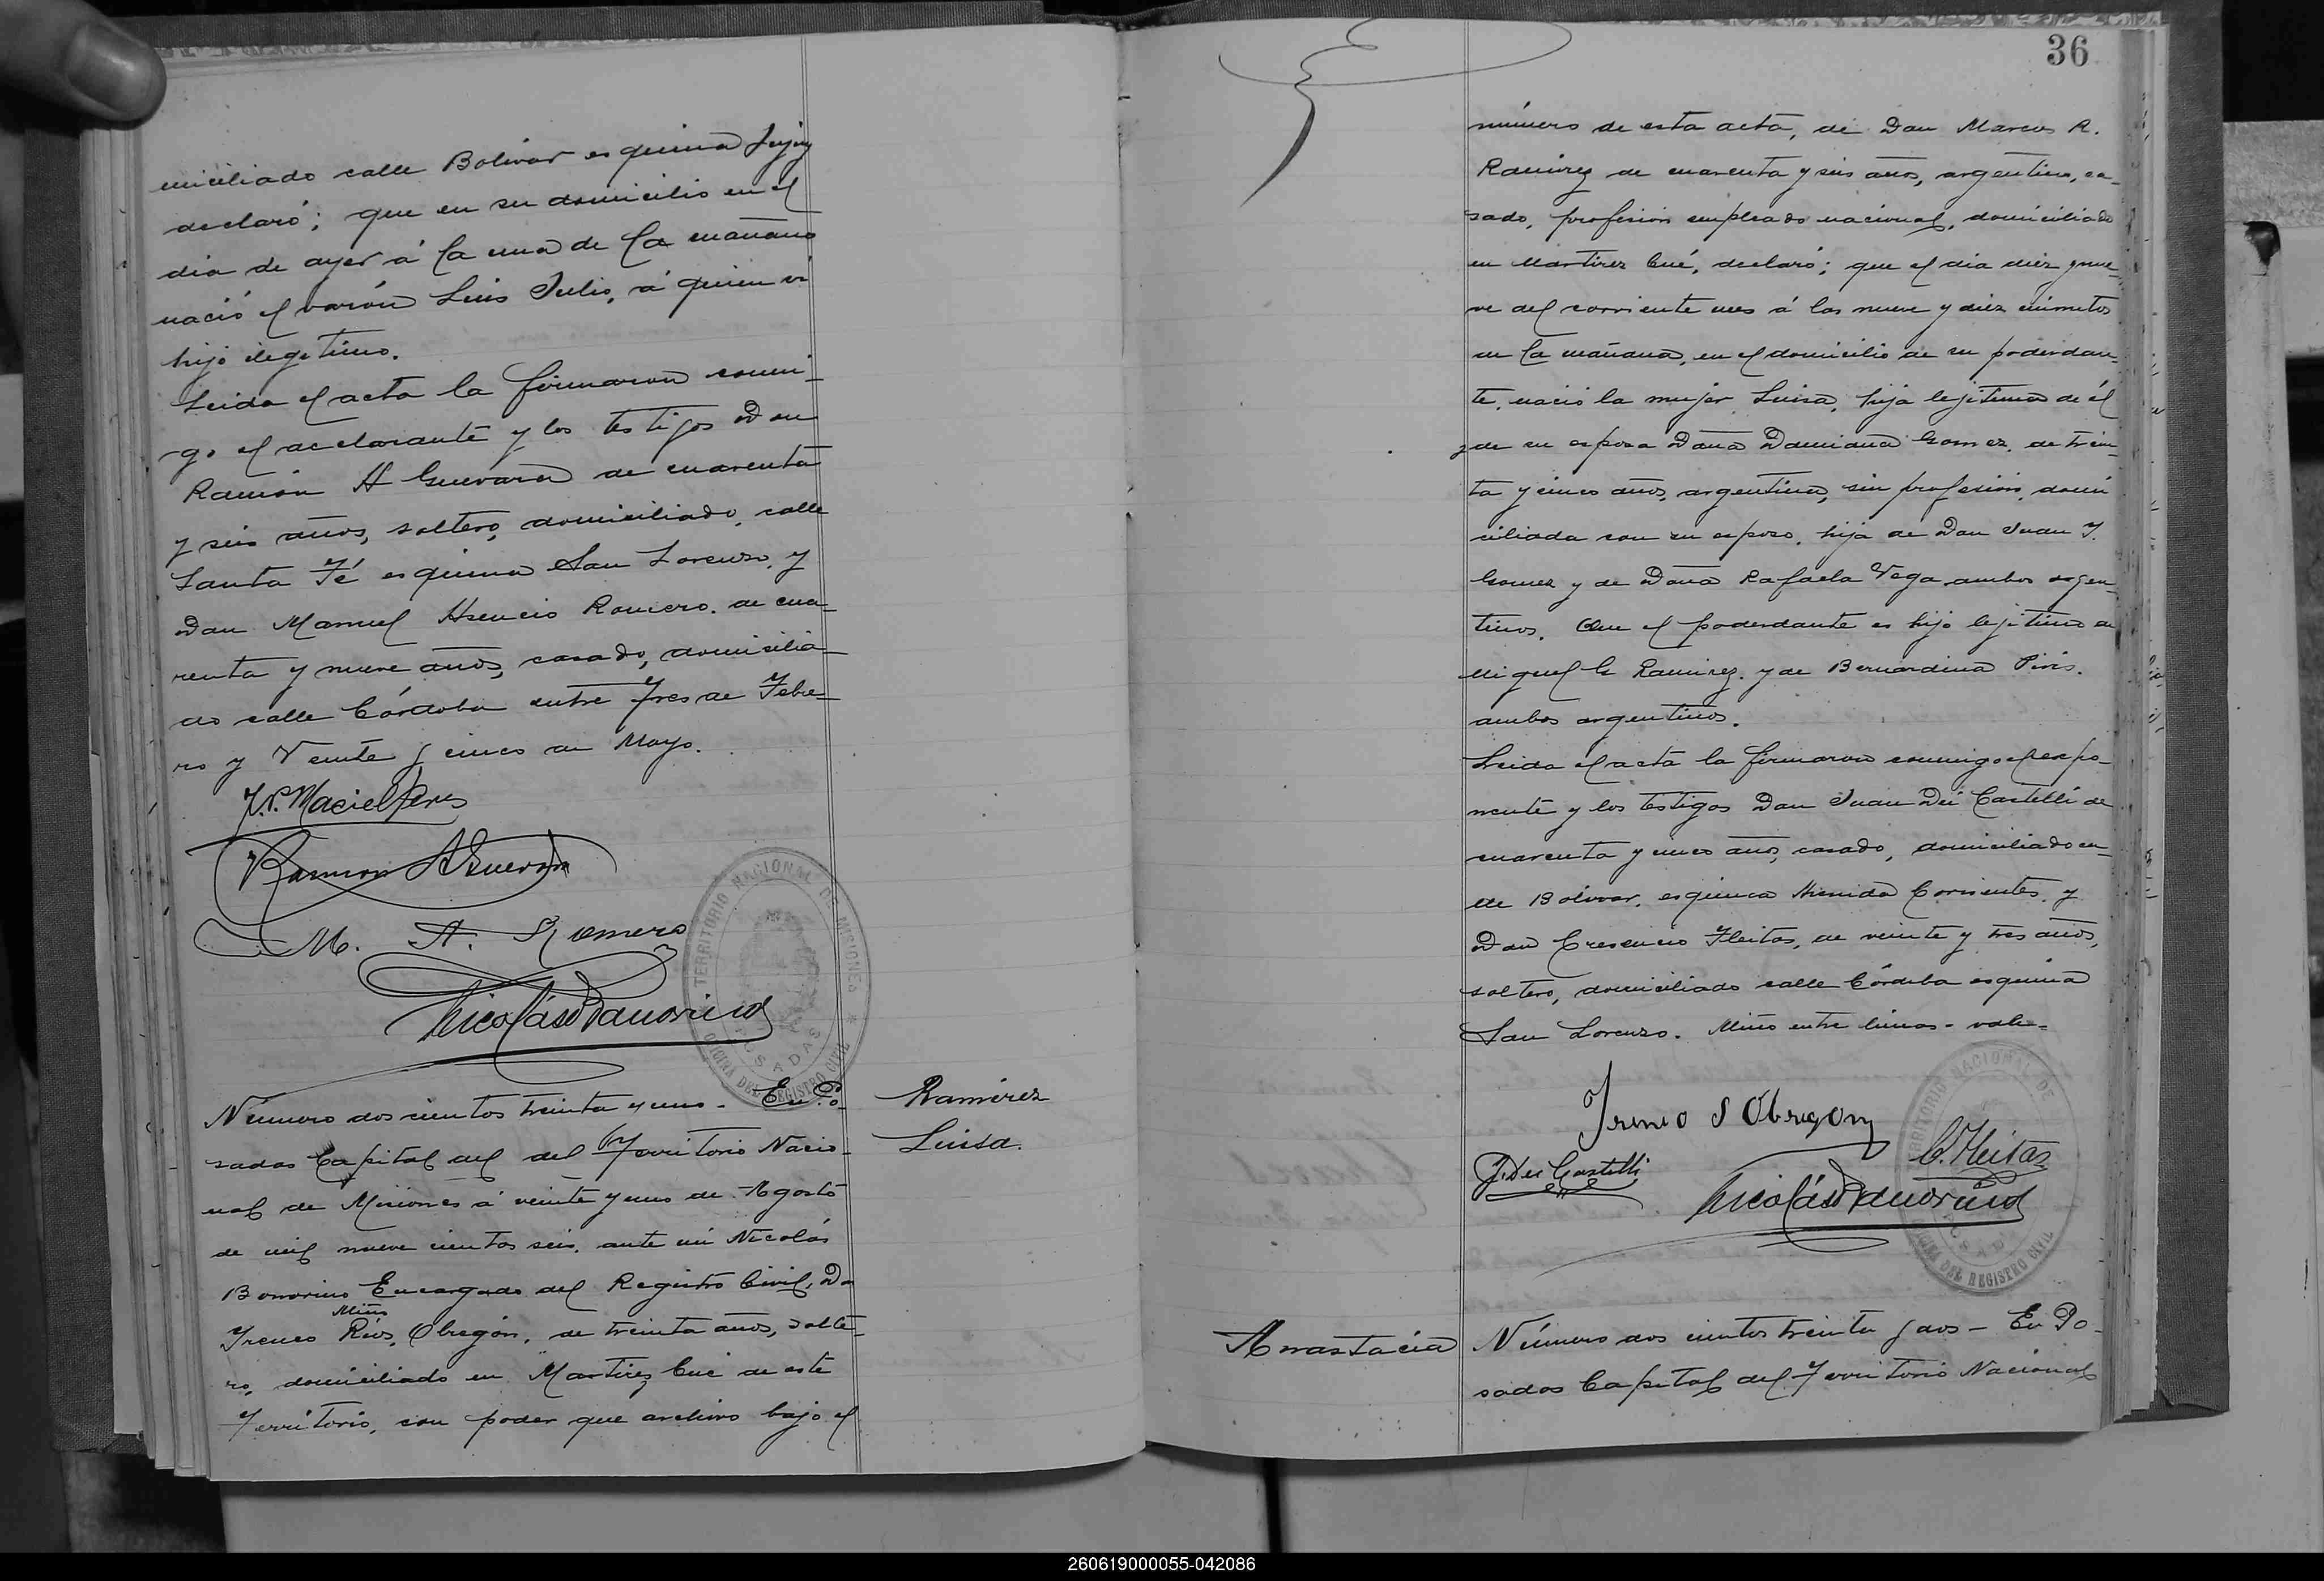 miciliado calle Bolívar esquina Jujuy
declaró; que en su domicilio en el
día de ayer á la una de la mañana
nació el varón Luis Julio, á quien
hijo ilegítimo.
Leida el acta la firmaron conmi-
go el declarante y los testigos Don
Ramón A Guevara de cuarenta
y seis años, soltero, domiciliado, calle
Santa Fé esquina San Lorenzo, y
Don Manuel Asencio Romero. de cua-
renta y nueve años, casado, domicilia-
do calle Córdoba entre Tres de Febre-
ro y Veinte y cinco de Mayo.
J. P. Maciel Peres
Ramon A Guevara
M. A. Romero
Nicolás Bonorino
TERRITORIO NACIONAL DE MISIONES
POSADAS
OFICINA DEL REGISTRO CIVIL
Número dos cientos treinta y uno - En Po-
sadas Capital del del Territorio Nacio-
nal de Misiones á veinte y uno de Agosto
de mil nueve cientos seis, ante mi Nicolás
Bonorino Encargado del Registro Civil, Dn
Miño
Ireneo Ríos, Obregón, de treinta años, solte-
ro, domiciliado en Martirez Cué de este
Territorio, con poder que archivo bajo el
Ramírez
Luisa.
36
número de esta acta, de Don Marcos R.
Ramirez de cuarenta y seis años, argentino, ca-
sado, profesión empleado nacional, domiciliado
en Martirez Cué, declaró; que el día diez y nue-
ve del corriente mes á las nueve y diez minutos
en la mañana, en el domicilio de su poderdan-
te, nació la mujer Luisa, hija lejitima de él
y de su esposa Doña Damiana Gomez, de trein-
ta y cinco años, argentina, sin profesión, domi
ciliada con su esposo, hija de Don Juan J.
Gomez y de Doña Rafaela Vega ambos argen-
tinos. Que el poderdante es hijo lejitimo de
Miguel G Ramirez. y de Bernardina Piris.
ambos argentinos.
Leida el acta la firmaron conmigo el expo-
nente y los testigos Don Juan Dei Castelli de
cuarenta y cinco años, casado, domiciliado ca-
lle Bolívar, esquina Avenida Corrientes, y
Don Crescencio Fleitas, de veinte y tres años,
soltero, domiciliado calle Córdoba esquina
San Lorenzo. Miño entre lineas - vale -
Ireneo S Obregon
J. Dei Castelli
C. Fleitas
Nicolás Bonorino
TERRITORIO NACIONAL DE
POSADAS
OFICINA DEL REGISTRO CIVIL
Anastacia
Número dos cientos treinta y dos - En Po-
sadas Capital del Territorio Nacional
260619000055-042086